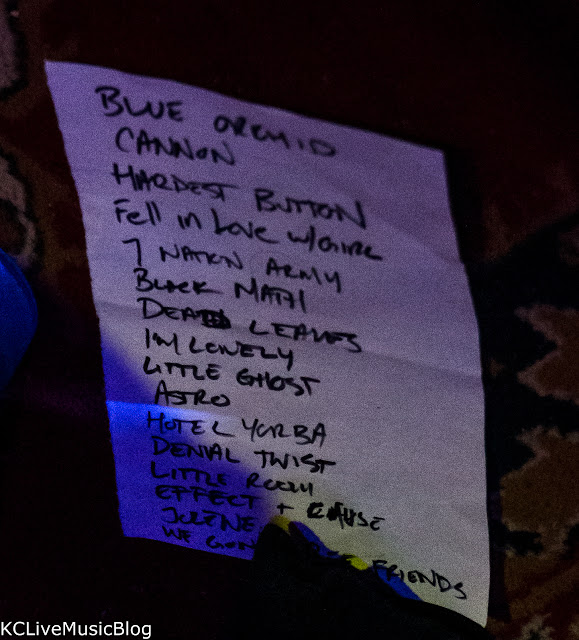 BLUE ORCHID
CANNON
HARDEST BUTTON
Fell in Love w/GIRL
7 NATION ARMY
BLACK MATH
DEAD LEAVES
IM LONELY
LITTLE GHOST
ASTRO
HOTEL YORBA
DENIAL TWIST
LITTLE ROOM
EFFECT + CAUSE
JOLENE
WE FRIENDS
KCLiveMusicBlog